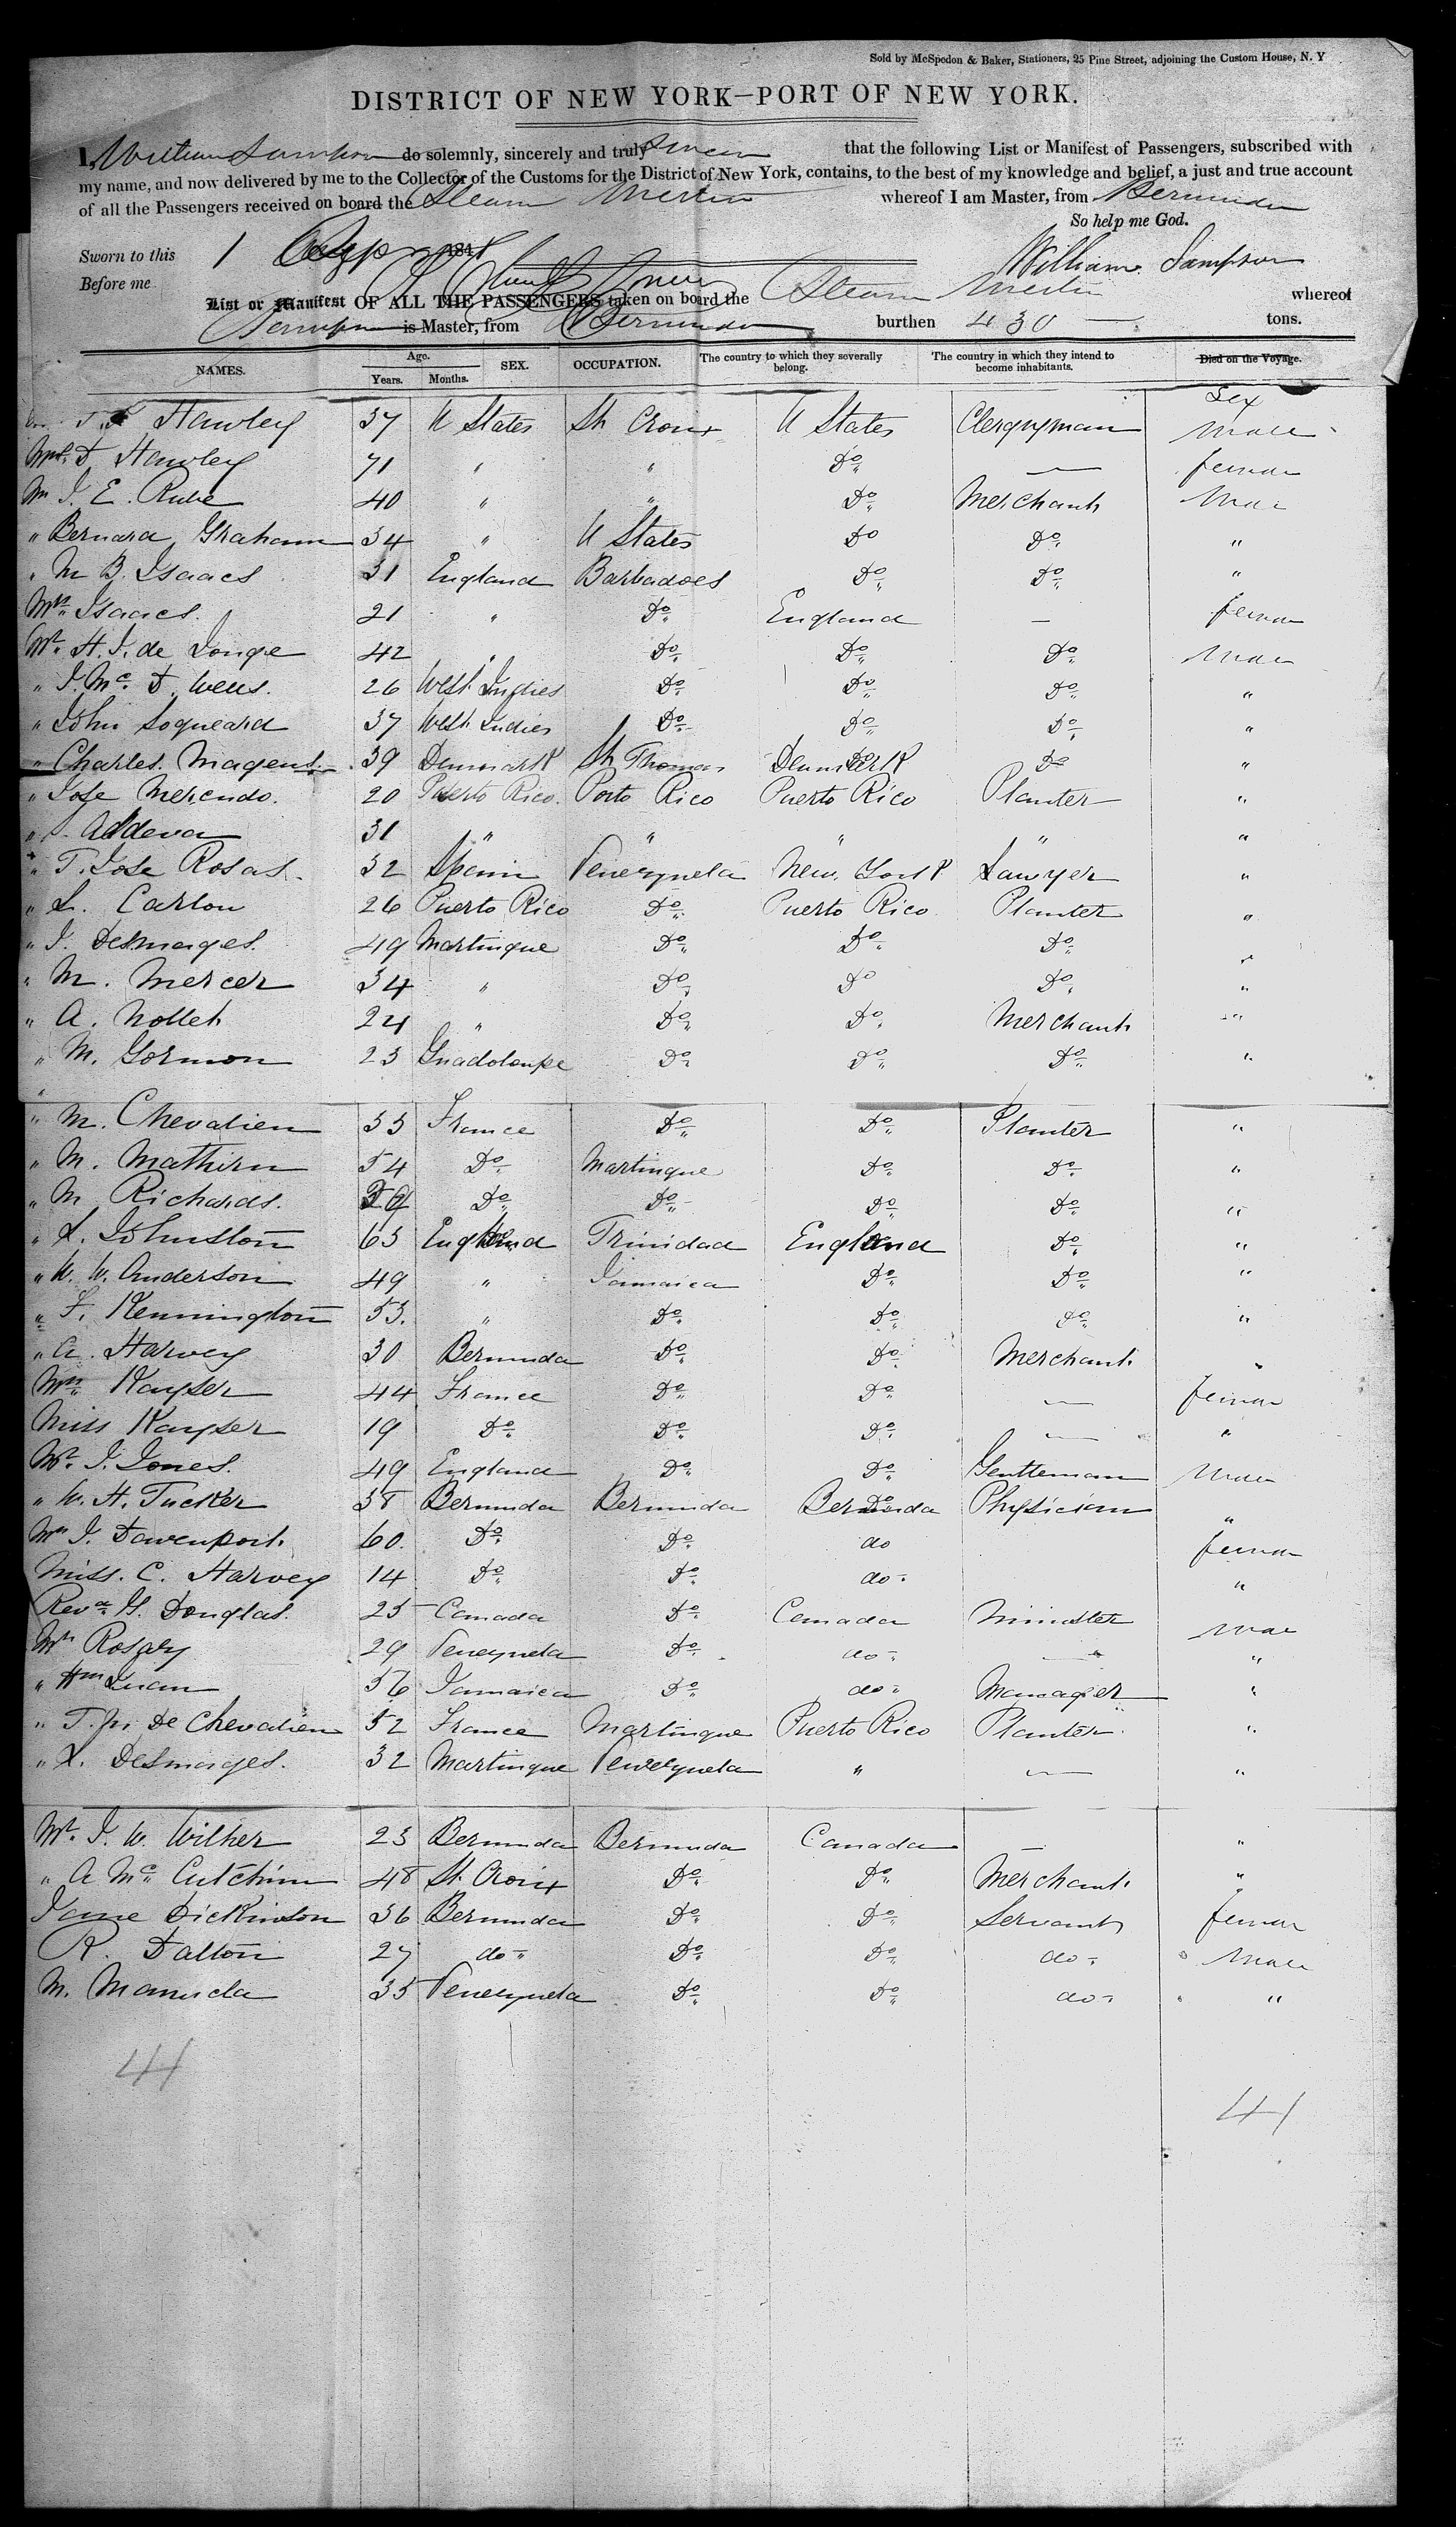 Sold by McSpedon & Baker, Stationers, 25 Pine Street, adjoining the Custom House, N. Y
DISTRICT OF NEW YORK—PORT OF NEW YORK.
I, William Sampson do solemnly, sincerely and truly Swear that the following List or Manifest of Passengers, subscribed with
my name, and now delivered by me to the Collector of the Customs for the District of New York, contains, to the best of my knowledge and belief, a just and true account
of all the Passengers received on board the Steam Merlin whereof I am Master, from Bermuda
So help me God.
Sworn to this 1 184 William Sampson
Before me
List or Manifest OF ALL THE PASSENGERS taken on board the Steam Merlin whereof
Sampson is Master, from Bermuda burthen 430 — tons.
NAMES. Age. Years. Months. SEX. OCCUPATION. The country to which they severally belong. The country in which they intend to become inhabitants. Died on the Voyage.
Sex
Hawley 37 U States St Croix U States Clergyman Male
D Hawley 71 " " Do — female
Mr J. E. Rube 40 " " Do Merchant Male
" Bernard Graham 34 " U States Do Do "
" M B. Isaacs 31 England Barbadoes Do Do "
Mrs Isaacs. 21 " Do England — female
Mr. H. J. de Jonge 42 " Do Do Do Male
" J. Mc. D. Wells. 26 West Indies Do Do Do "
" John 37 West Indies Do Do Do "
" Charles Magens. 39 Denmark St Thomas Denmark Do "
" Jose Mercado. 20 Puerto Rico. Porto Rico Puerto Rico Planter "
" 31 " " " " "
" T. Jose Rosas. 32 Spain Venezuela New York Lawyer "
" L. Carlon 26 Puerto Rico Do Puerto Rico Planter "
" J. Desmages. 49 Martinque Do Do Do "
" M. Mercer 34 " Do Do Do "
" A. Nollet 24 " Do Do Merchant "
" M. Gormon 23 Guadoloupe Do Do Do "
" M. Chevalien 33 France Do Do Planter "
" M. Mathirn 54 Do Martinque Do Do "
" M. Richards. Do Do Do Do "
" L. Johnston 63 England Trinidad England Do "
" W. W. Anderson 49 " Jamaica Do Do "
" F. Kennington 53. " Do Do Do "
" A. Harvey 30 Bermuda Do Do Merchant "
Mrs Kayser 44 France Do Do — female
Miss Kayser 19 Do Do Do — "
Mr. J. Jones. 49 England Do Do Gentleman Male
" W. H. Tucker 38 Bermuda Bermuda Bermuda Physician "
Mrs J. Davenport. 60. Do Do do female
Miss. C. Harvey 14 Do Do do "
Revd G. Douglas. 25 Canada Do Canada Minister Male
Mr Rosaly 29 Venezuela Do do — "
" Wm 36 Jamaica Do do Manager "
" De Chevalien 52 France Martinque Puerto Rico Planter "
" L. Desmages. 32 Martinque Venezuela " — "
Mr. J. W. Wilher 23 Bermuda Bermuda Canada — "
" A Mc. Cutchin 48 St. Croix Do Do Merchant. "
Jane Dickinson 36 Bermuda Do Do Servant female
R. Dalton 27 do Do Do do Male
M. Manuela 35 Venezuela Do Do do "
41
41